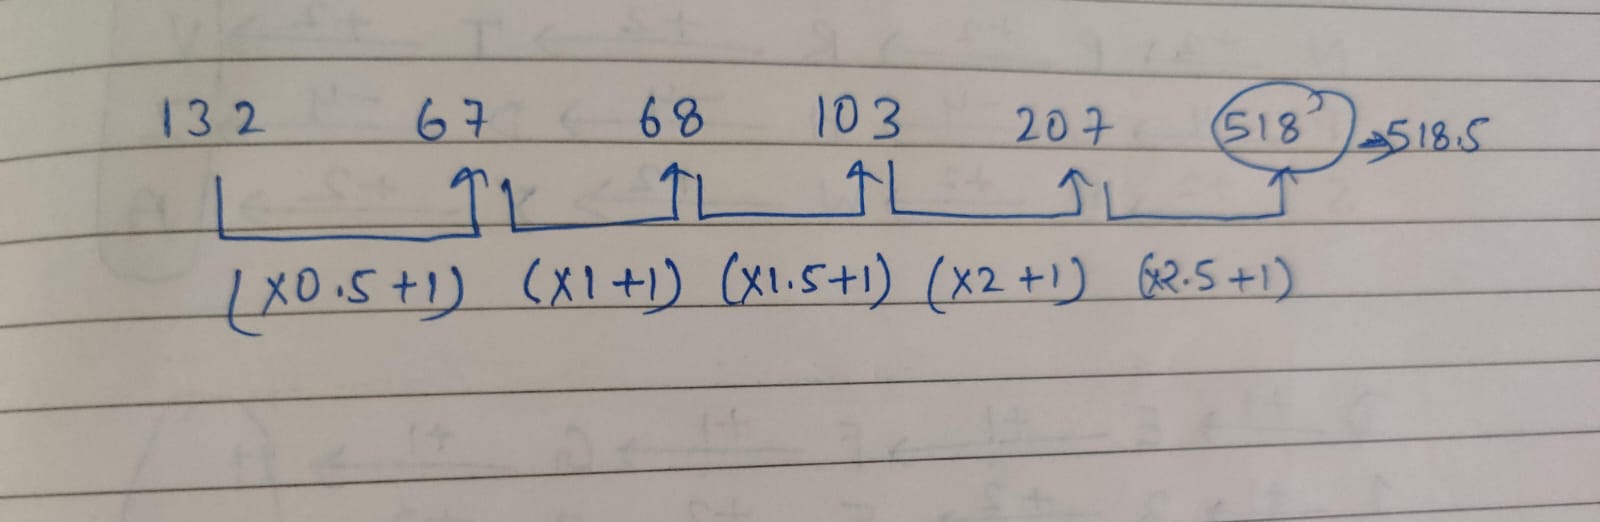 132 67 68 103 207 518 →518.5
(×0.5+1) (×1+1) (×1.5+1) (×2+1) (×2.5+1)